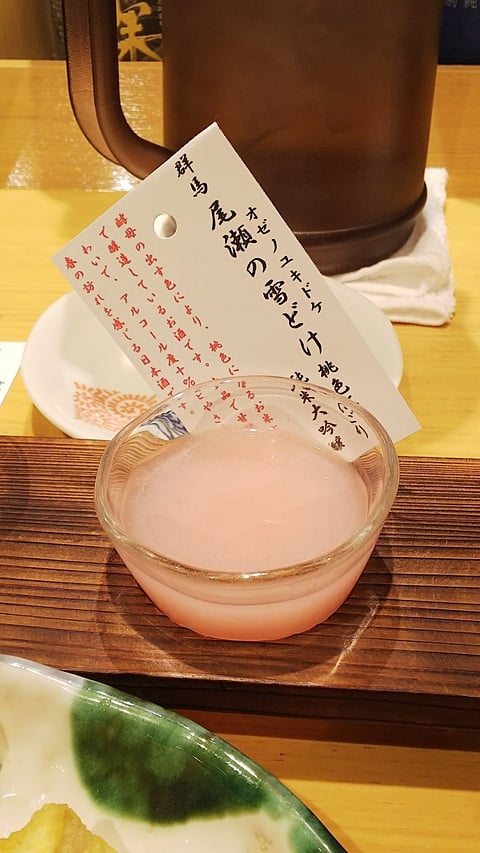 群馬
オゼノユキドケ
尾瀬の雪どけ
桃色にごり
純米大吟醸
酵母の出す色により、桃色に
て醸造しているお酒です。
わいで、アルコール度十%
春の訪れを感じる日本酒